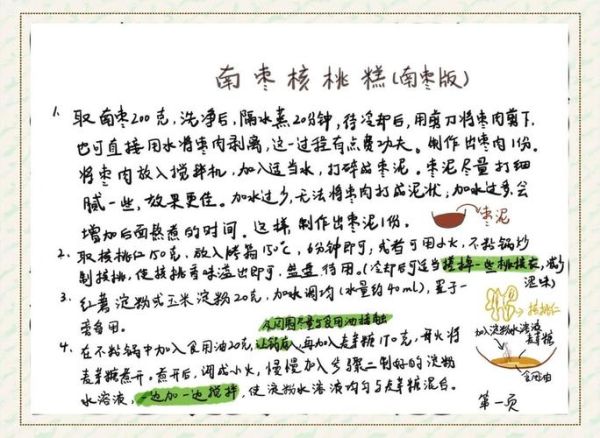 南枣核桃糕(南枣版)
1. 取南枣200克,洗净后,隔水蒸20分钟,待冷却后,用剪刀将枣肉剪下,
也可直接用水将枣肉剥离,这一过程有点费功夫。制作出枣肉1份。
将枣肉放入搅拌机,加入适当水,打碎成枣泥。枣泥尽量打细
腻一些,效果更佳。加水过少,无法将枣肉打成泥状,加水过多,会
增加后面熬煮的时间。这样,制作出枣泥1份。
枣泥
2. 取核桃仁150克,放入烤箱150℃,6分钟即可,或者可用小火,不粘锅炒
制核桃,使核桃香味溢出即可,盖盖待用。(冷却后可适当搓掉一些核桃衣,减少
涩味)
3. 红薯淀粉或玉米淀粉20克,加水调均(水量约40ml),置于一
旁备用。
锅周围尽量与食用油接触
4. 在不粘锅中加入食用油20克,让锅底,再加入麦芽糖150克,开火将
麦芽糖煮开。煮开后,调成小火,慢慢加入步骤二制好的淀粉
水溶液,一边加一边搅拌,使淀粉水溶液均匀与麦芽糖混合。
核桃仁
加入淀粉水溶液
麦芽糖
食用油
第一页